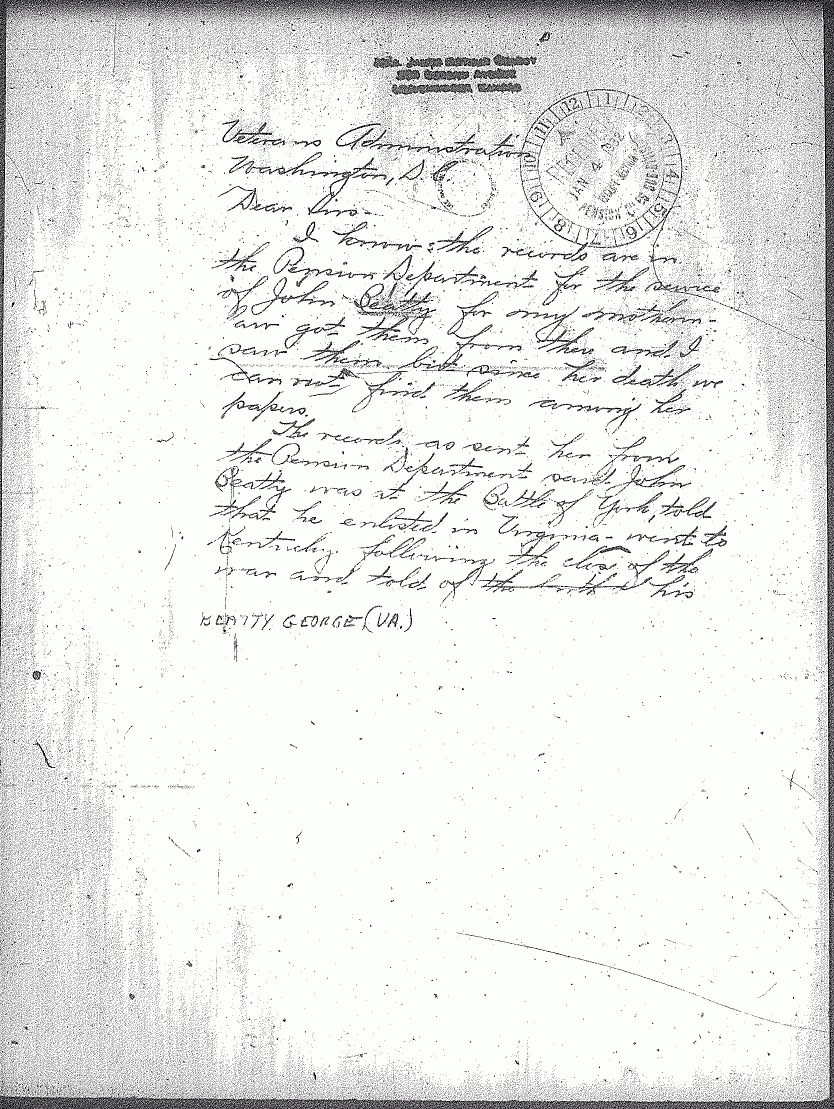 Veterans Administration
Washington, D.C.
Dear Sirs-
I know the records are in
the Pension Department for the service
of John Beatty for my mother-in-
law got them from there and I
saw them but since her death we
can not find them among her
papers.
The records as sent her from
the Pension Department said John
Beatty was at the Battle of York, told
that he enlisted in Virginia - went to
Kentucky following the close of the
war and told of the birth of his
BEATTY GEORGE (VA.)
RECEIVED
JAN 4 1932
PENSION